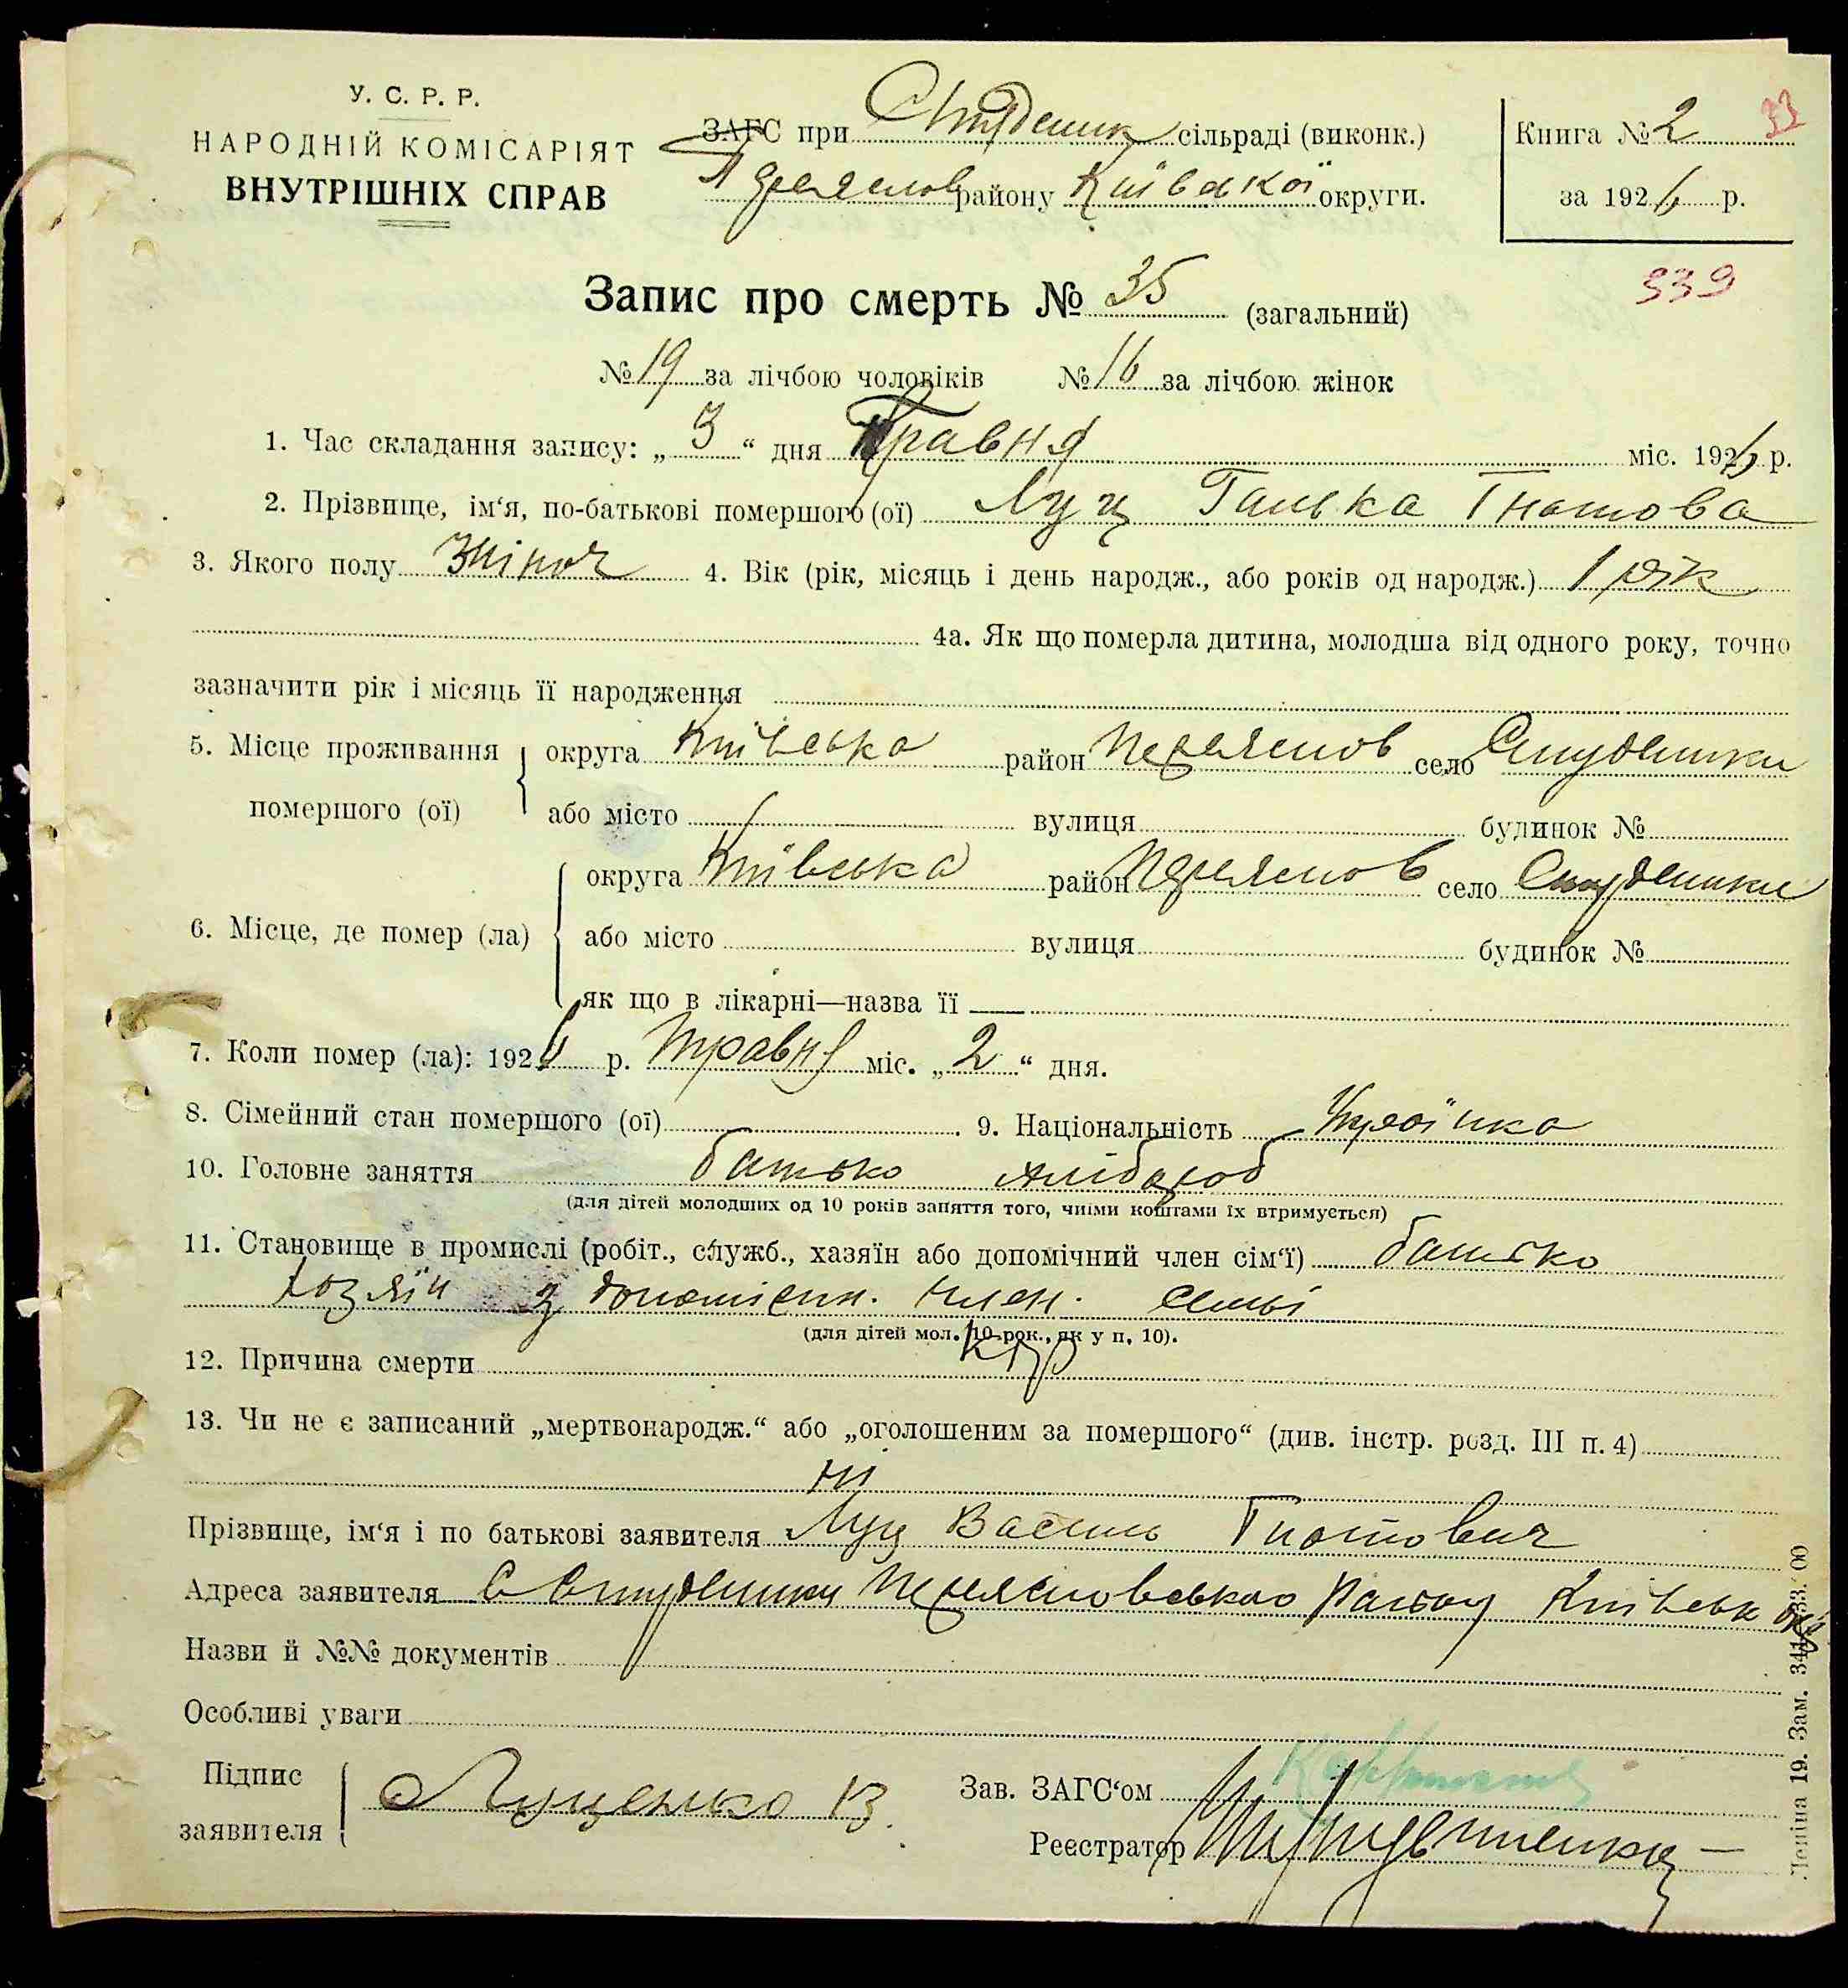 У. С. Р. Р.
НАРОДНІЙ КОМІСАРІЯТ
ВНУТРІШНІХ СПРАВ
ЗАГС при Студеник сільраді (виконк.)
району Київської округи.
Книга № 2 33
за 1926 р.
339
Запис про смерть № 35 (загальний)
№ 19 за лічбою чоловіків № 16 за лічбою жінок
1. Час складання запису: „ 3 “ дня Травня міс. 1926 р.
2. Прізвище, ім‘я, по-батькові помершого (ої) Луц Ганька Гнатова
3. Якого полу жіноч 4. Вік (рік, місяць і день народж., або років од народж.) 1 рік
4а. Як що померла дитина, молодша від одного року, точно
зазначити рік і місяць її народження
5. Місце проживання помершого (ої) округа Київська район Переяслов село Студеники
або місто вулиця будинок №
6. Місце, де помер (ла) округа Київська район Переяслов село Студеники
або місто вулиця будинок №
як що в лікарні—назва її
7. Коли помер (ла): 1926 р. Травня міс. „ 2 “ дня.
8. Сімейний стан помершого (ої) 9. Національність Україїнка
10. Головне заняття батько хлібороб
(для дітей молодших од 10 років заняття того, чиїми коштами їх втримується)
11. Становище в промислі (робіт., служб., хазяїн або допомічний член сім‘ї) батько
хозяїн з допомісчн. член. семьї
(для дітей мол. 10 рок., як у п. 10).
12. Причина смерти кір
13. Чи не є записаний „мертвонародж.“ або „оголошеним за помершого“ (див. інстр. розд. III п. 4)
ні
Прізвище, ім‘я і по батькові заявителя Луц Василь Гнатович
Адреса заявителя С Студеники Переясловського Району Київськ окр
Назви й №№ документів
Особливі уваги
Підпис заявителя Луценко В.
Зав. ЗАГС‘ом
Реєстратор
Леніна 19. Зам. 341